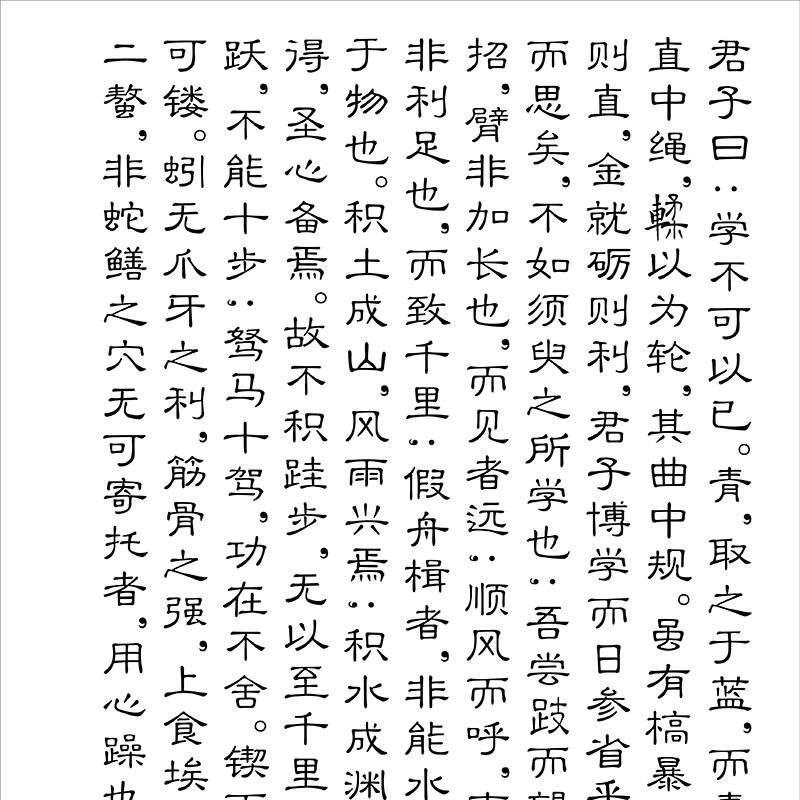 君子曰：学不可以已。青，取之于蓝，而
直中绳，輮以为轮，其曲中规。虽有槁暴
则直，金就砺则利，君子博学而日参省乎
而思矣，不如须臾之所学也；吾尝跂而望
招，臂非加长也，而见者远；顺风而呼，
非利足也，而致千里；假舟楫者，非能水
于物也。积土成山，风雨兴焉；积水成渊
得，圣心备焉。故不积跬步，无以至千里
跃，不能十步；驽马十驾，功在不舍。锲
可镂。蚓无爪牙之利，筋骨之强，上食埃
二螯，非蛇鳝之穴无可寄托者，用心躁也